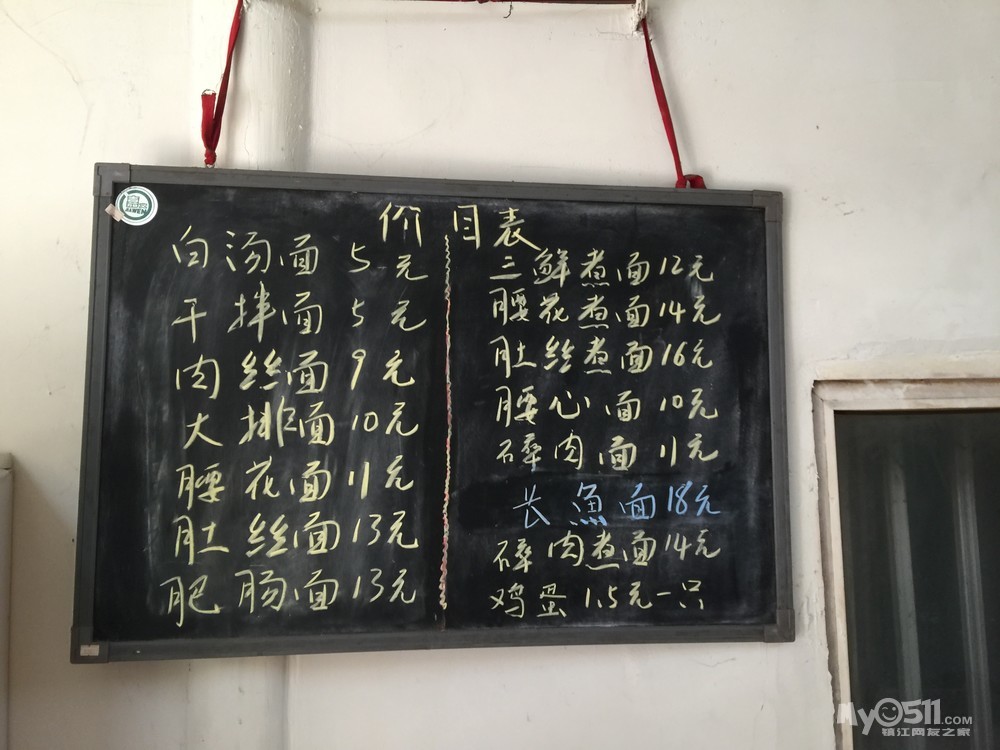 价目表
白汤面 5元
干拌面 5元
肉丝面 9元
大排面 10元
腰花面 11元
肚丝面 13元
肥肠面 13元
三鲜煮面 12元
腰花煮面 14元
肚丝煮面 16元
腰心面 10元
碎肉面 11元
长魚面 18元
碎肉煮面 14元
鸡蛋 1.5元一只
My0511.com
镇江网友之家